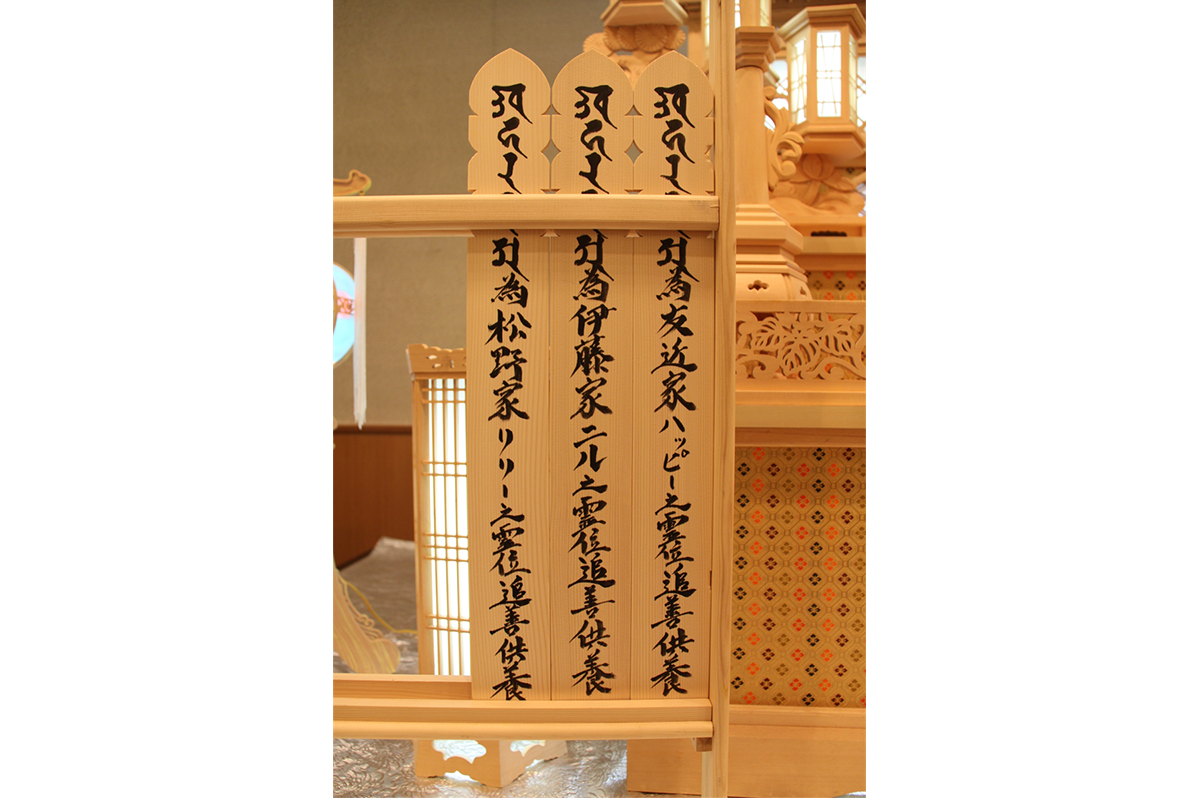 為友近家ハッピー之霊位追善供養
為伊藤家ニル之霊位追善供養
為松野家リリー之霊位追善供養